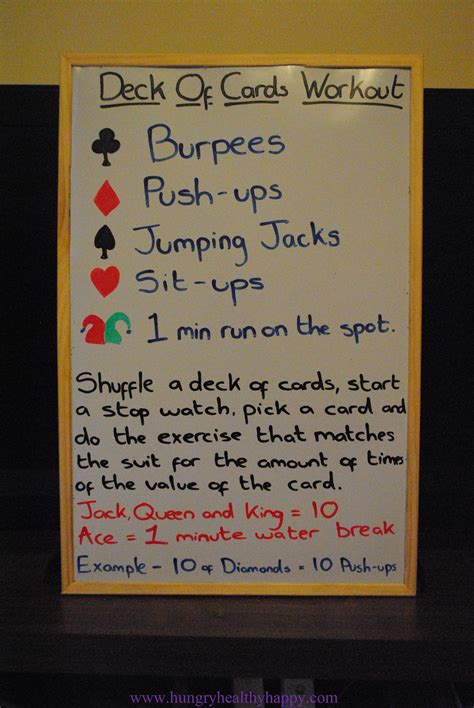 Deck Of Cards Workout
Burpees
Push-ups
Jumping Jacks
Sit-ups
1 min run on the spot.
Shuffle a deck of cards, start
a stop watch, pick a card and
do the exercise that matches
the suit for the amount of times
of the value of the card.
Jack, Queen and King = 10
Ace = 1 minute water break
Example - 10 of Diamonds = 10 Push-ups
www.hungryhealthyhappy.com